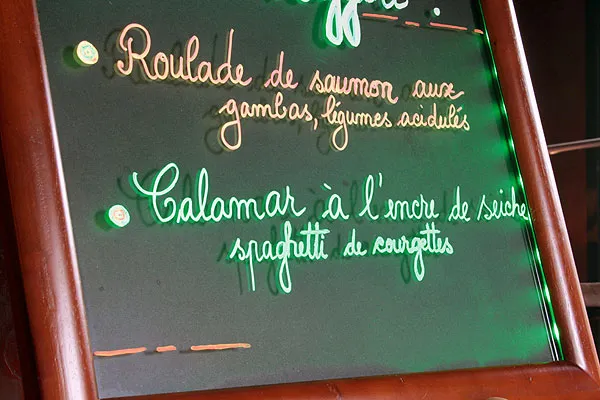 Roulade de saumon aux
gambas, légumes acidulés
Calamar à l'encre de seiche
spaghetti de courgettes